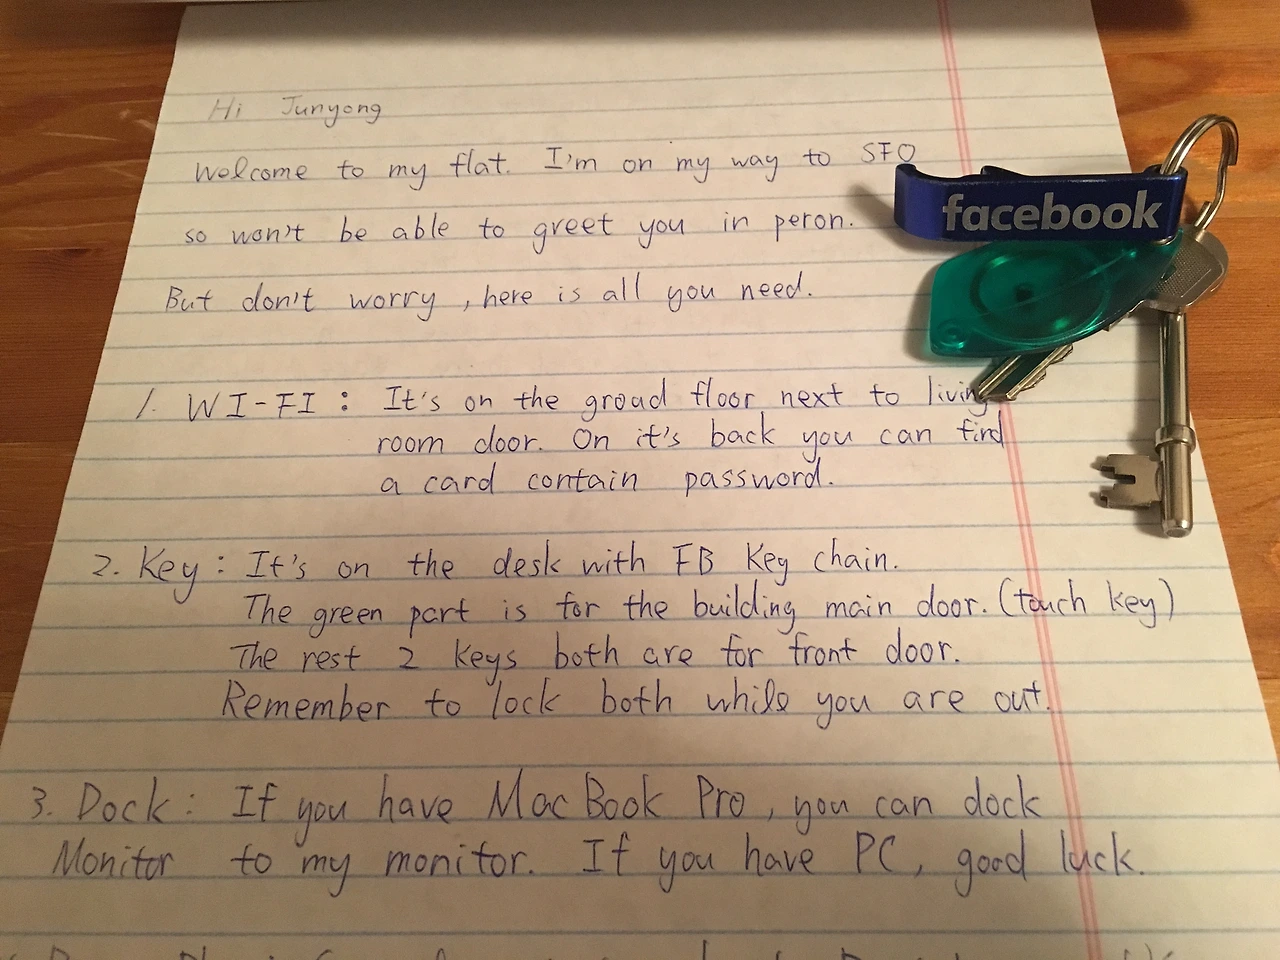 Hi Junyong
Welcome to my flat. I'm on my way to SFO
so won't be able to greet you in peron.
But don't worry, here is all you need.
1. WI-FI: It's on the groud floor next to living
room door. On it's back you can find
a card contain password.
2. Key: It's on the desk with FB Key chain.
The green part is for the building main door. (touch key)
The rest 2 keys both are for front door.
Remember to lock both while you are out.
3. Dock: If you have MacBook Pro, you can dock
Monitor to my monitor. If you have PC, good luck.
facebook